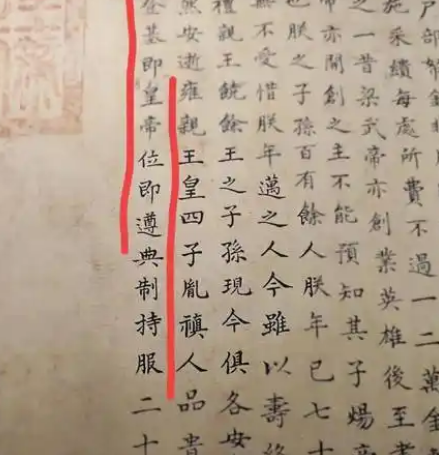 戶部帑金
施采繢每處所費不過一二萬金
之一昔梁武帝亦創業英雄後至
帝亦開創之主不能預知其子煬帝
也朕之子孫百有餘人朕年已七十
無不愛惜朕年邁之人今雖以壽終
禮親王饒餘王之子孫現今俱各安
熙安逝雍親王皇四子胤禛人品貴
登基即皇帝位即遵典制持服二十